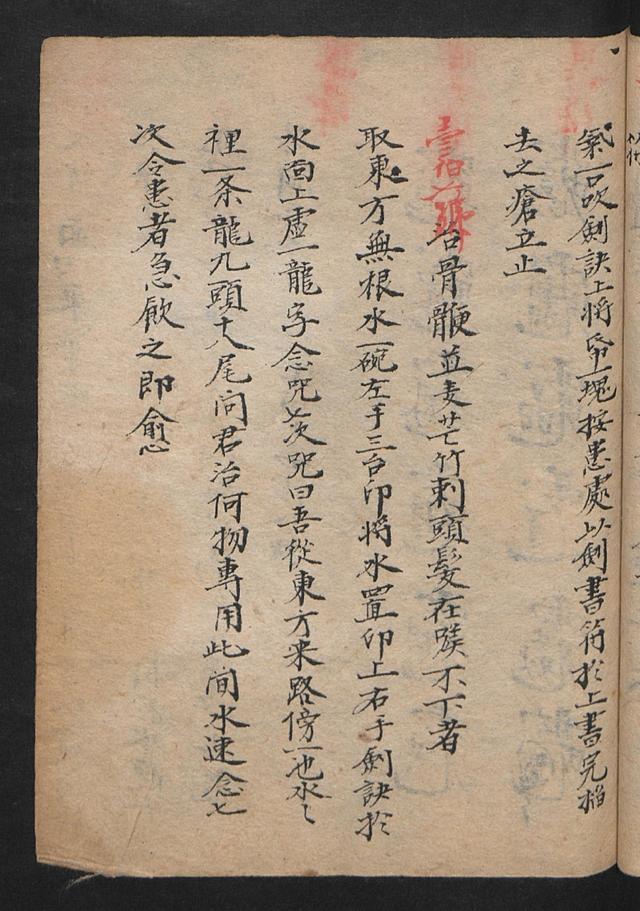 氣一口吹劍訣上將帋一塊按患處以劍書符於上書完焰
去之瘡立止
治骨鯁並麦芒竹刺頭髮在喉不下者
取東方無根水一碗左手三台印將水置印上右手劍訣於
水面上虛一龍字念咒七次咒曰吾從東方来路傍一池水〻
裡一条龍九頭十八尾问君治何物專用此间水速念七
次令患者急飲之即愈